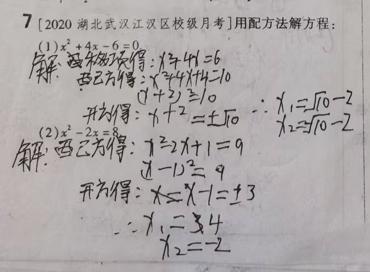 7 [2020 湖北武汉江汉区校级月考]用配方法解方程:
(1) x² + 4x - 6 = 0
解: 移项得: x²+4x=6
配方得: x²+4x+4=10
(x+2)²=10
开方得: x+2=±√10 ∴ x₁=√10-2
x₂=-√10-2
(2) x² - 2x = 8
解: 配方得: x²-2x+1=9
(x-1)²=9
开方得: x-1=±3
∴ x₁=4
x₂=-2